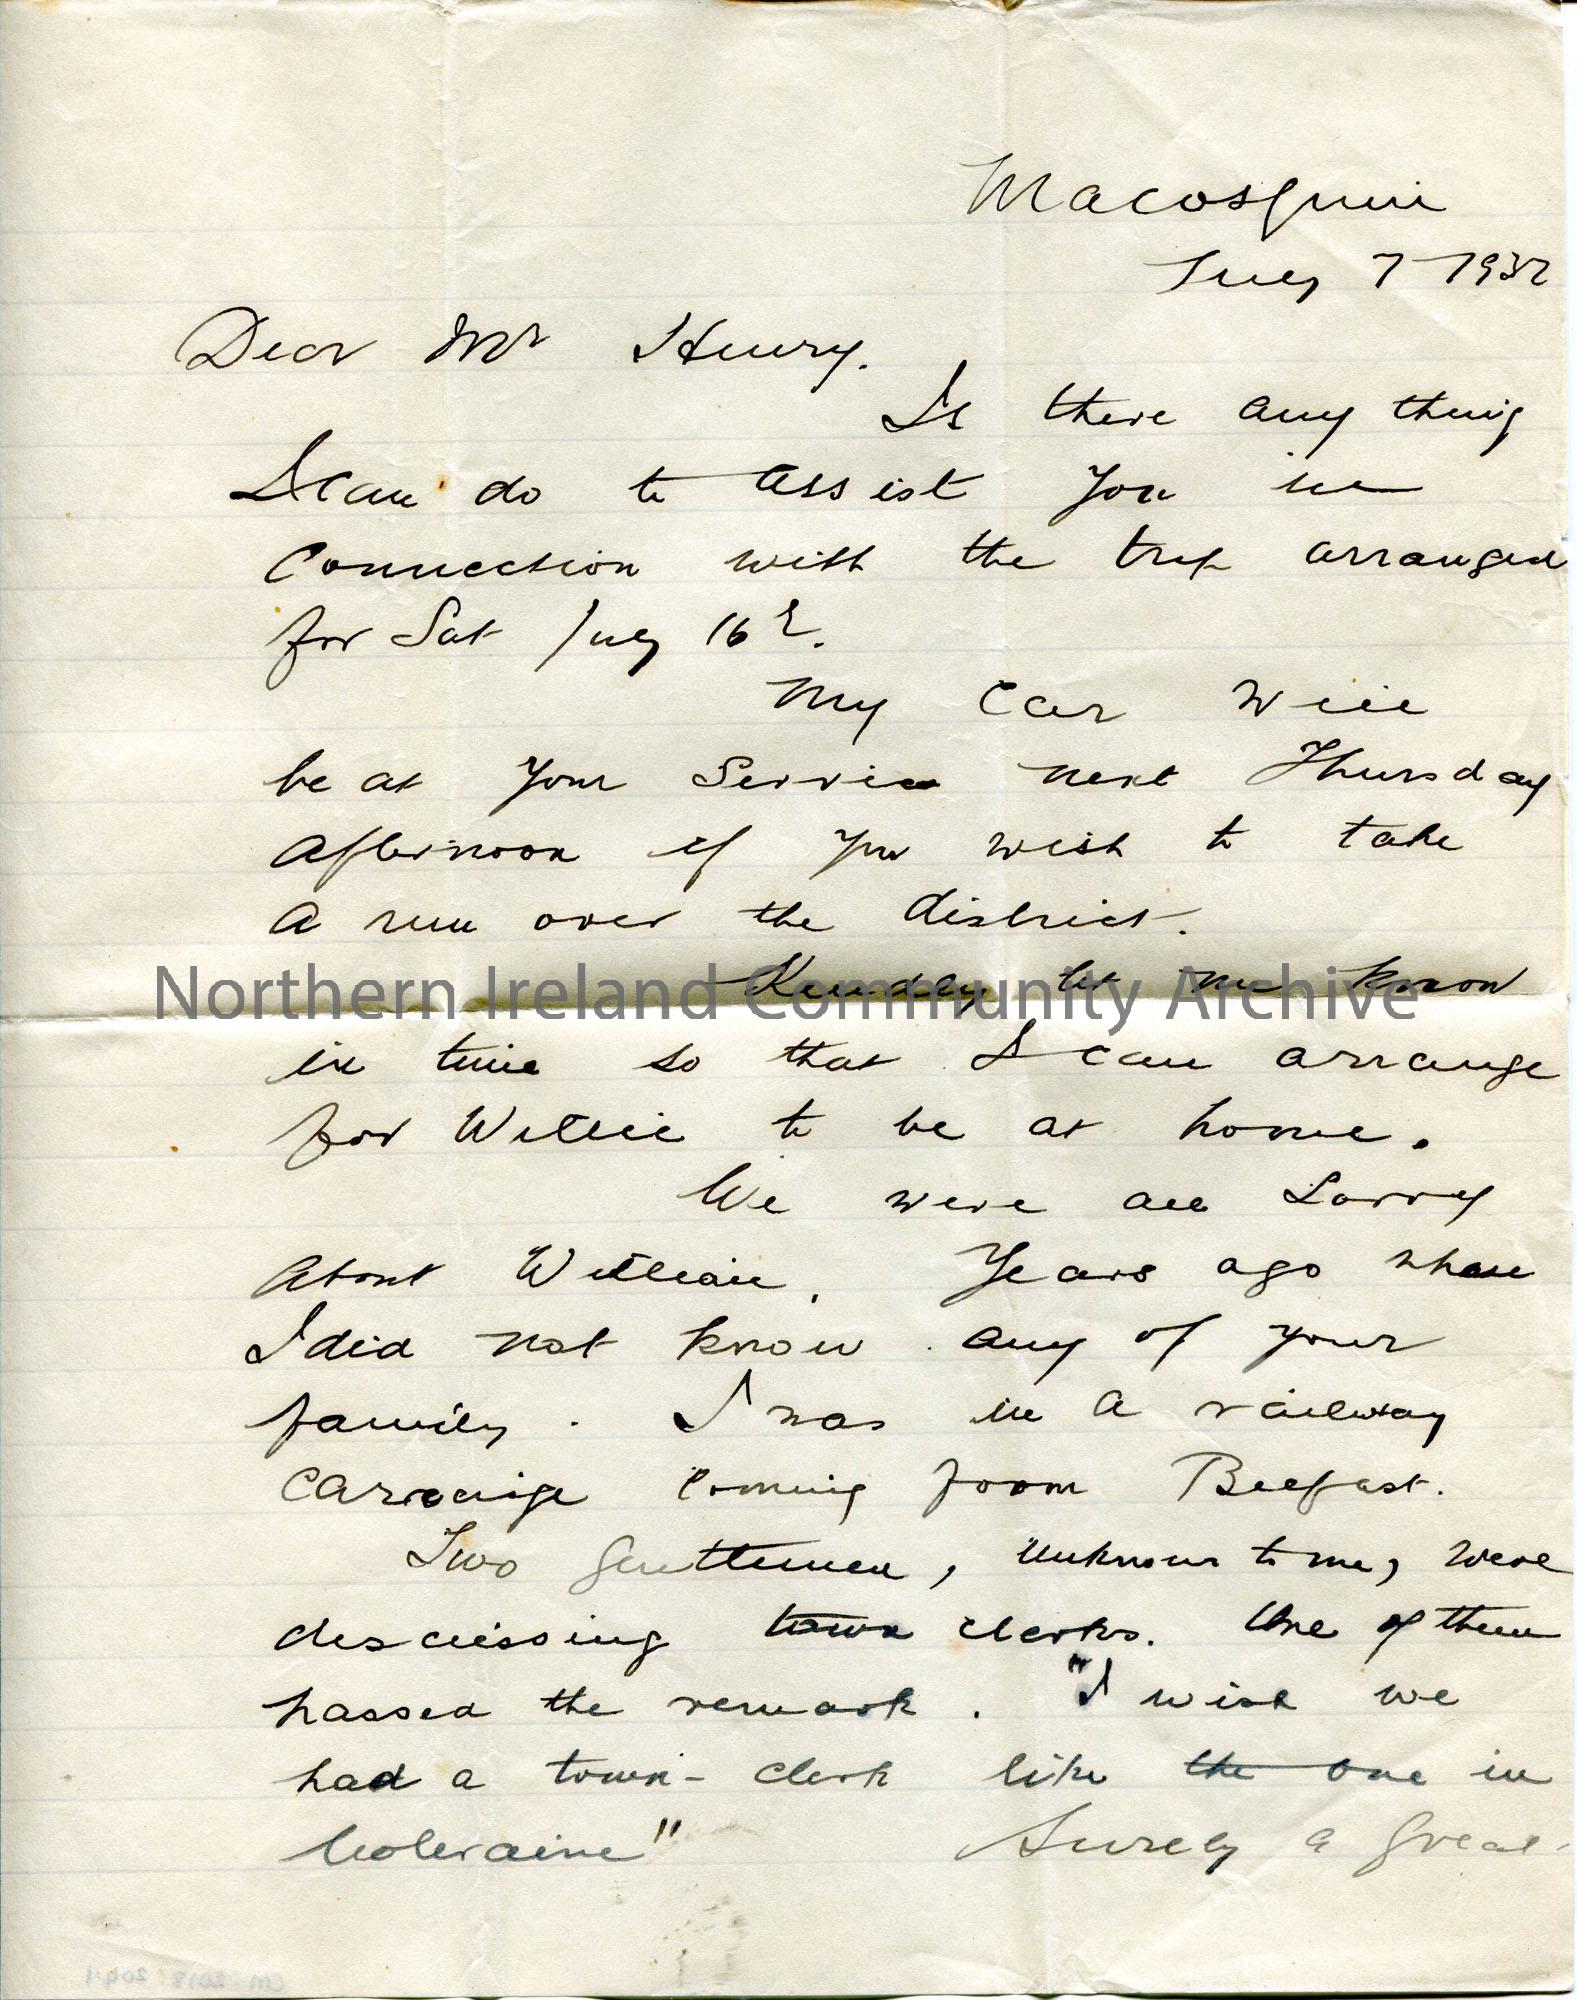 Macosquin
July 7 1932
Dear Mr Henry.
Is there any thing
I can do to assist you in
Connection with the trip arranged
for Sat July 16th.
My car will
be at your Service next Thursday
afternoon if you wish to take
a run over the district.
Kindly let me know
in time so that I can arrange
for Willie to be at home.
We were all Sorry
about William. Years ago when
I did not know any of your
family. I was in a railway
carraige coming from Belfast.
Two gentlemen, unknown to me, were
discussing town clerks. One of them
passed the remark. "I wish we
had a town-clerk like the one in
Coleraine" Surely a great
Northern Ireland Community Archive